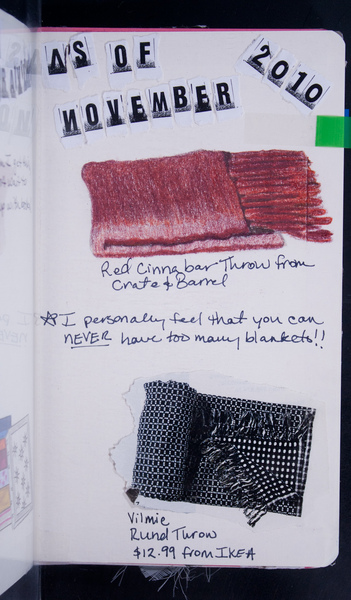 A'S OF
2010
NOVEMBER
Red Cinnabar Throw from
Crate & Barrel
☆ I personally feel that you can
NEVER have too many blankets!!
Vilmie
Rund Throw
$12.99 from IKEA